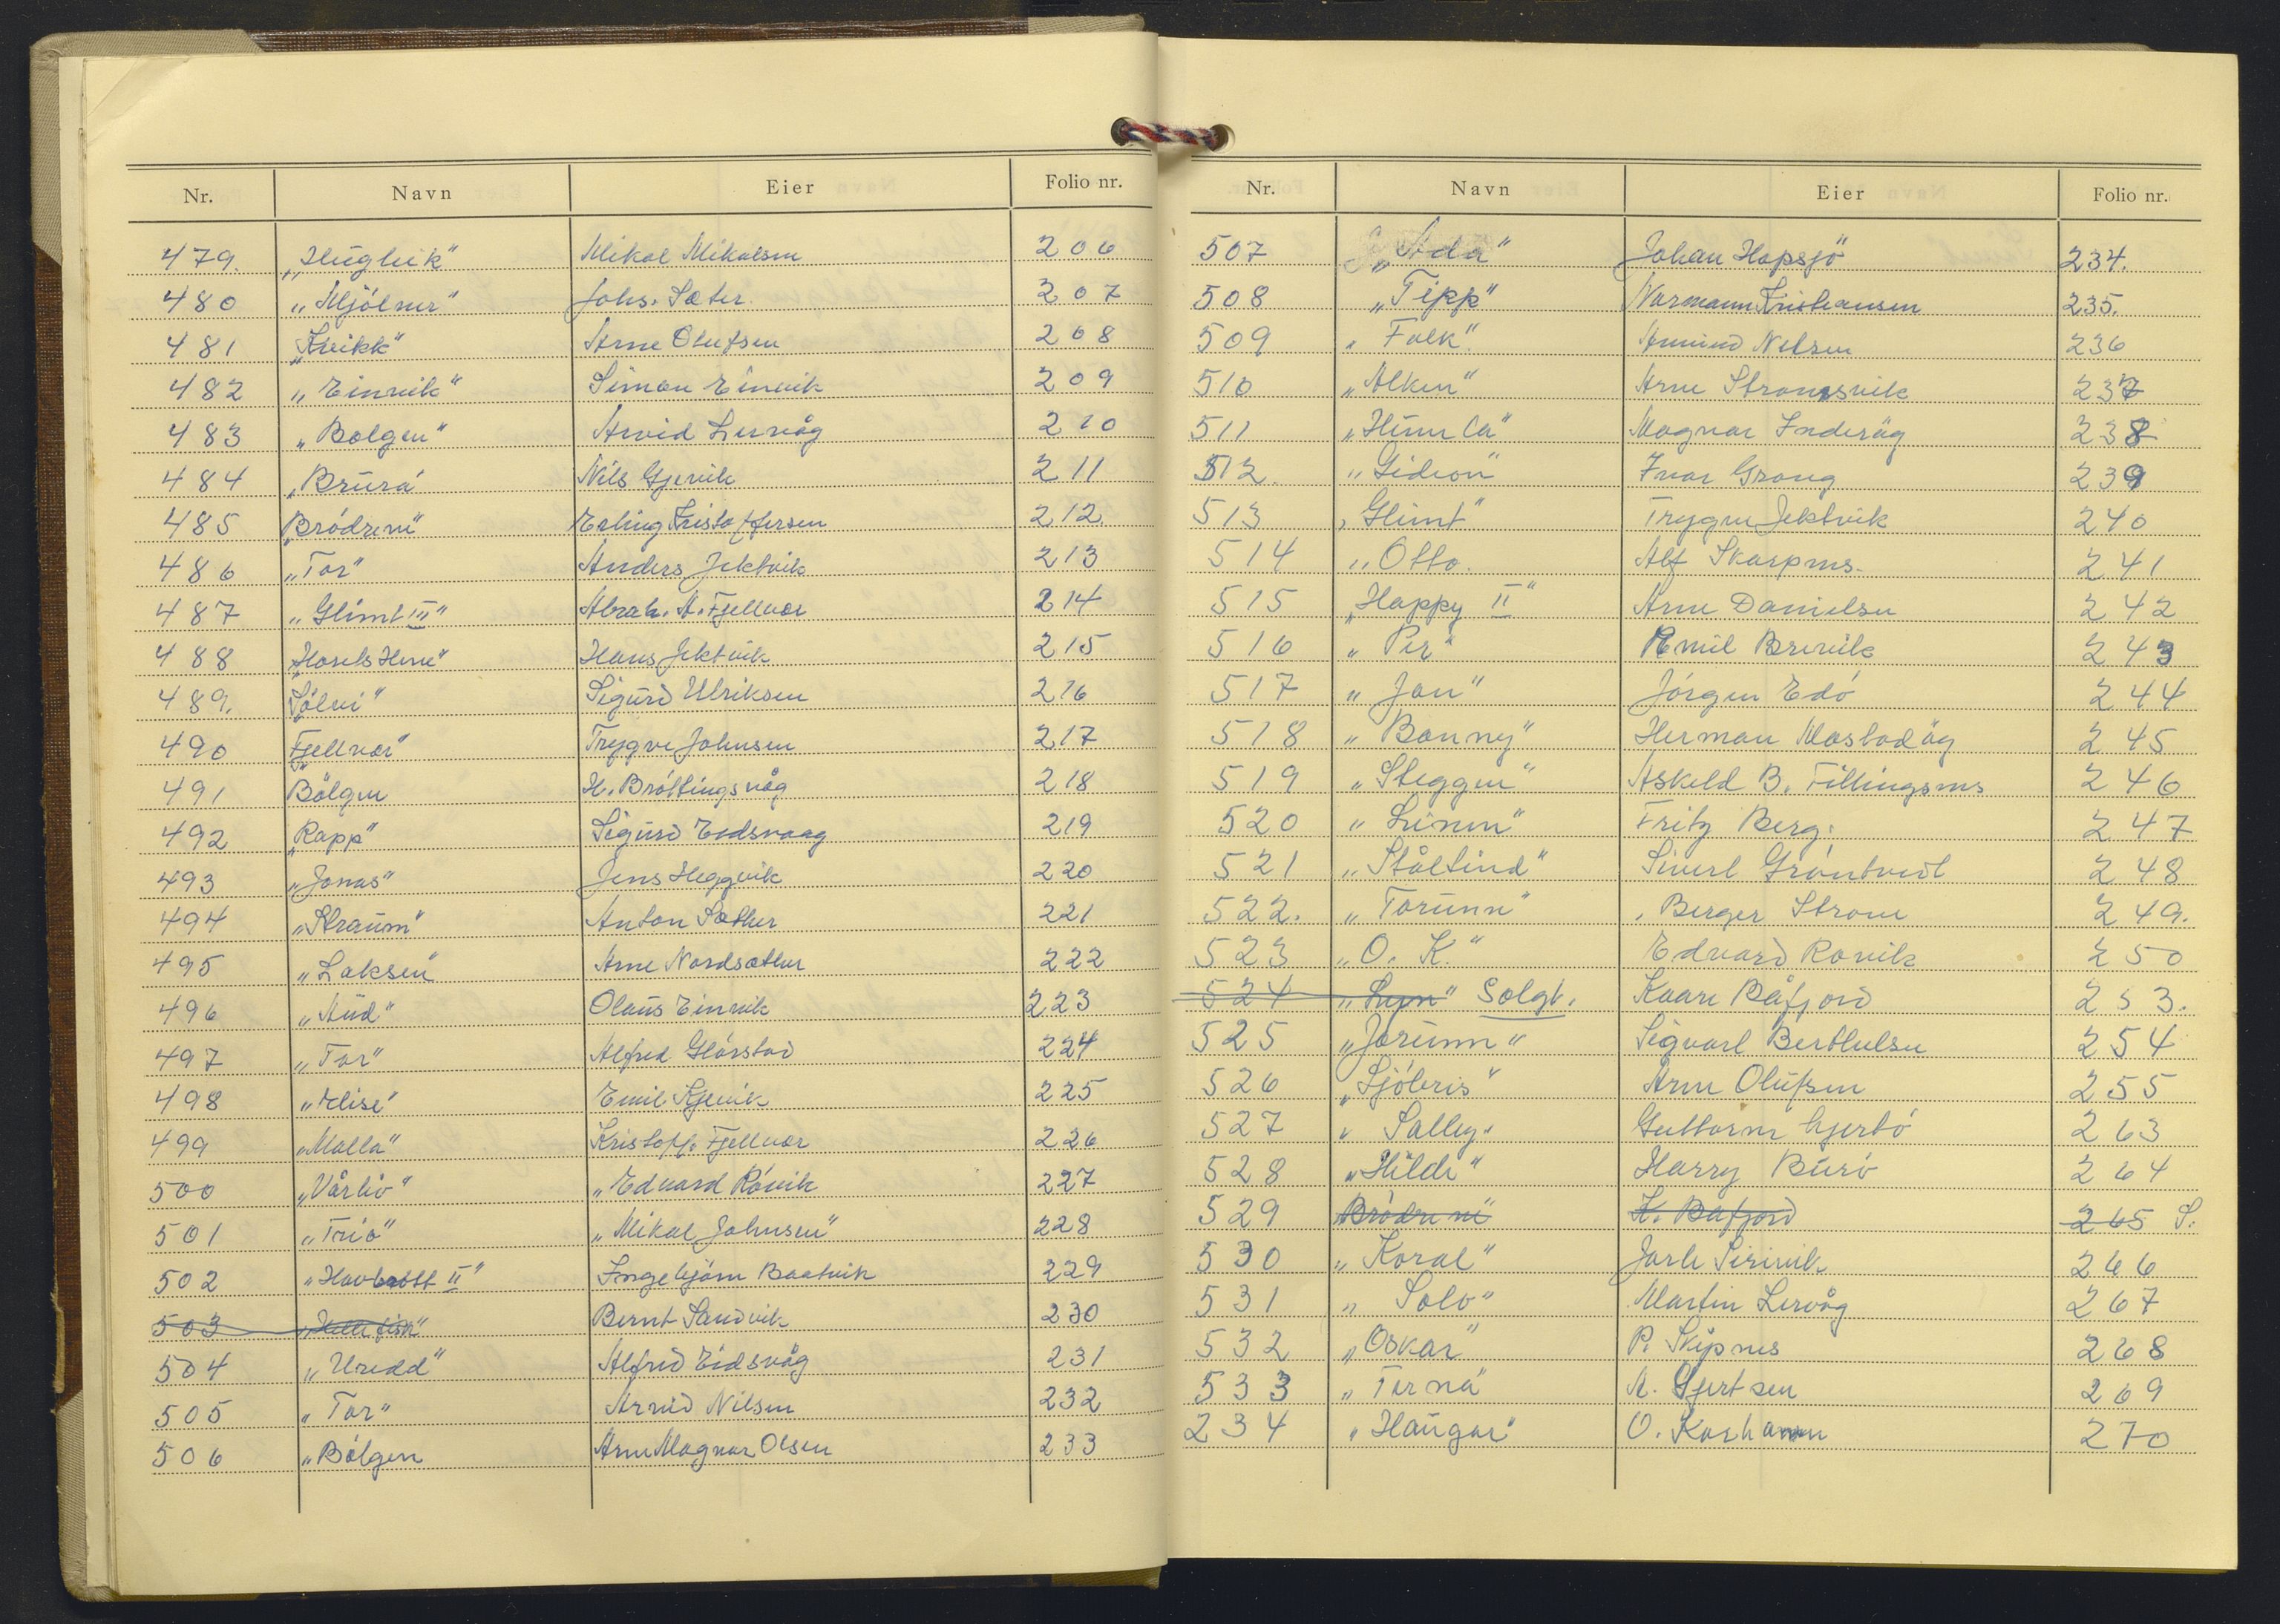 Nr. Navn Eier Folio nr.
479. „Huglick" Mikal Mikalsen 206
480 „Mjölner" Johs. Sæter. 207
481 „Kvikk" Arne Olufsen 208
482 „Einvik" Simon Einvik 209
483 „Bolgen" Arvid Lervåg 210
484 „Brura" Nils Gjervik 211
485 Brödrene" Erling Kristoffersen 212.
486 „Tor" Anders Jektvik 213
487 „Glimt III" Abrah. A. Fjellvær 214
488 Hans Jektvik 215
489. „Sölvi" Sigurd Ulriksen 216
490 „Fjellvær" Trygve Johnsen 217
491 Bölgen H. Bröttingsvåg 218
492 „Rapp" Sigurd Eidsvaag 219
493 „Jonas" Jens Heggvik 220
494 „Straum" Anton Sæther 221
495 „Laksen" Arne Nordsæther 222
496 „Aud" Olaus Einvik 223
497 „Tor" Alfred Glörstad 224
498 „Elise" Emil Kjervik 225
499 „Malla" Kristoff. Fjellvær 226
500 „Vårliv" „Edvard Rövik 227
501 „Trio" „Mikal Johnsen" 228
502 „Havbrått II" Ingebjörn Baatvik 229
503 Bernt Sandvik 230
504 „Uredd" Alfred Eidsvåg 231
505 „Tor" Arvid Nilsen 232
506 „Bölgen Arne Magnar Olsen 233
Nr. Navn Eier Folio nr.
507 „Ada" Johan Hopsjö 234.
508 „Tipp" Normann Kristiansen 235.
509 „Falk". Amund Nilsen 236
510 „Alken" Arne Strømsvik 237
511 Magnar Inderåg 238
512. „Gideon" Ivar Grong 239
513 „Glimt" Trygve Jektvik 240
514 „Otto. Alf Skarpnes. 241
515 „Happy II" Arne Danielsen 242
516 „Per" Emil Brevik 243
517 „Jan" Jörgen Edö 244
518 „Bonny" Herman Mostadåg 245
519 „Steggen" Askeld B. Fillingsnes 246
520 Fritz Berg. 247
521 „Ståltind" Sivert Gröntvedt 248
522. „Torunn" Berger Strøm 249.
523 „O. K." Edvard Rovik 250
524 „Lyn" Solgt. Kaare Båfjord 253.
525 „Jorunn" Sigvart Berthelsen 254
526 „Sjöbris" Arne Olufsen 255
527 „Sally. Guttorm Gjertö 263
528 „Hilde" Harry Burö 264
529 „Brödrene" K. Båfjord 265 S.
530 „Koral" Jarle Sirivik 266
531 „Solo" Martin Lervåg 267
532 „Oskar" P. Skipnes 268
533 „Terna" A. Gjertsen 269
234 „Haugar" 270